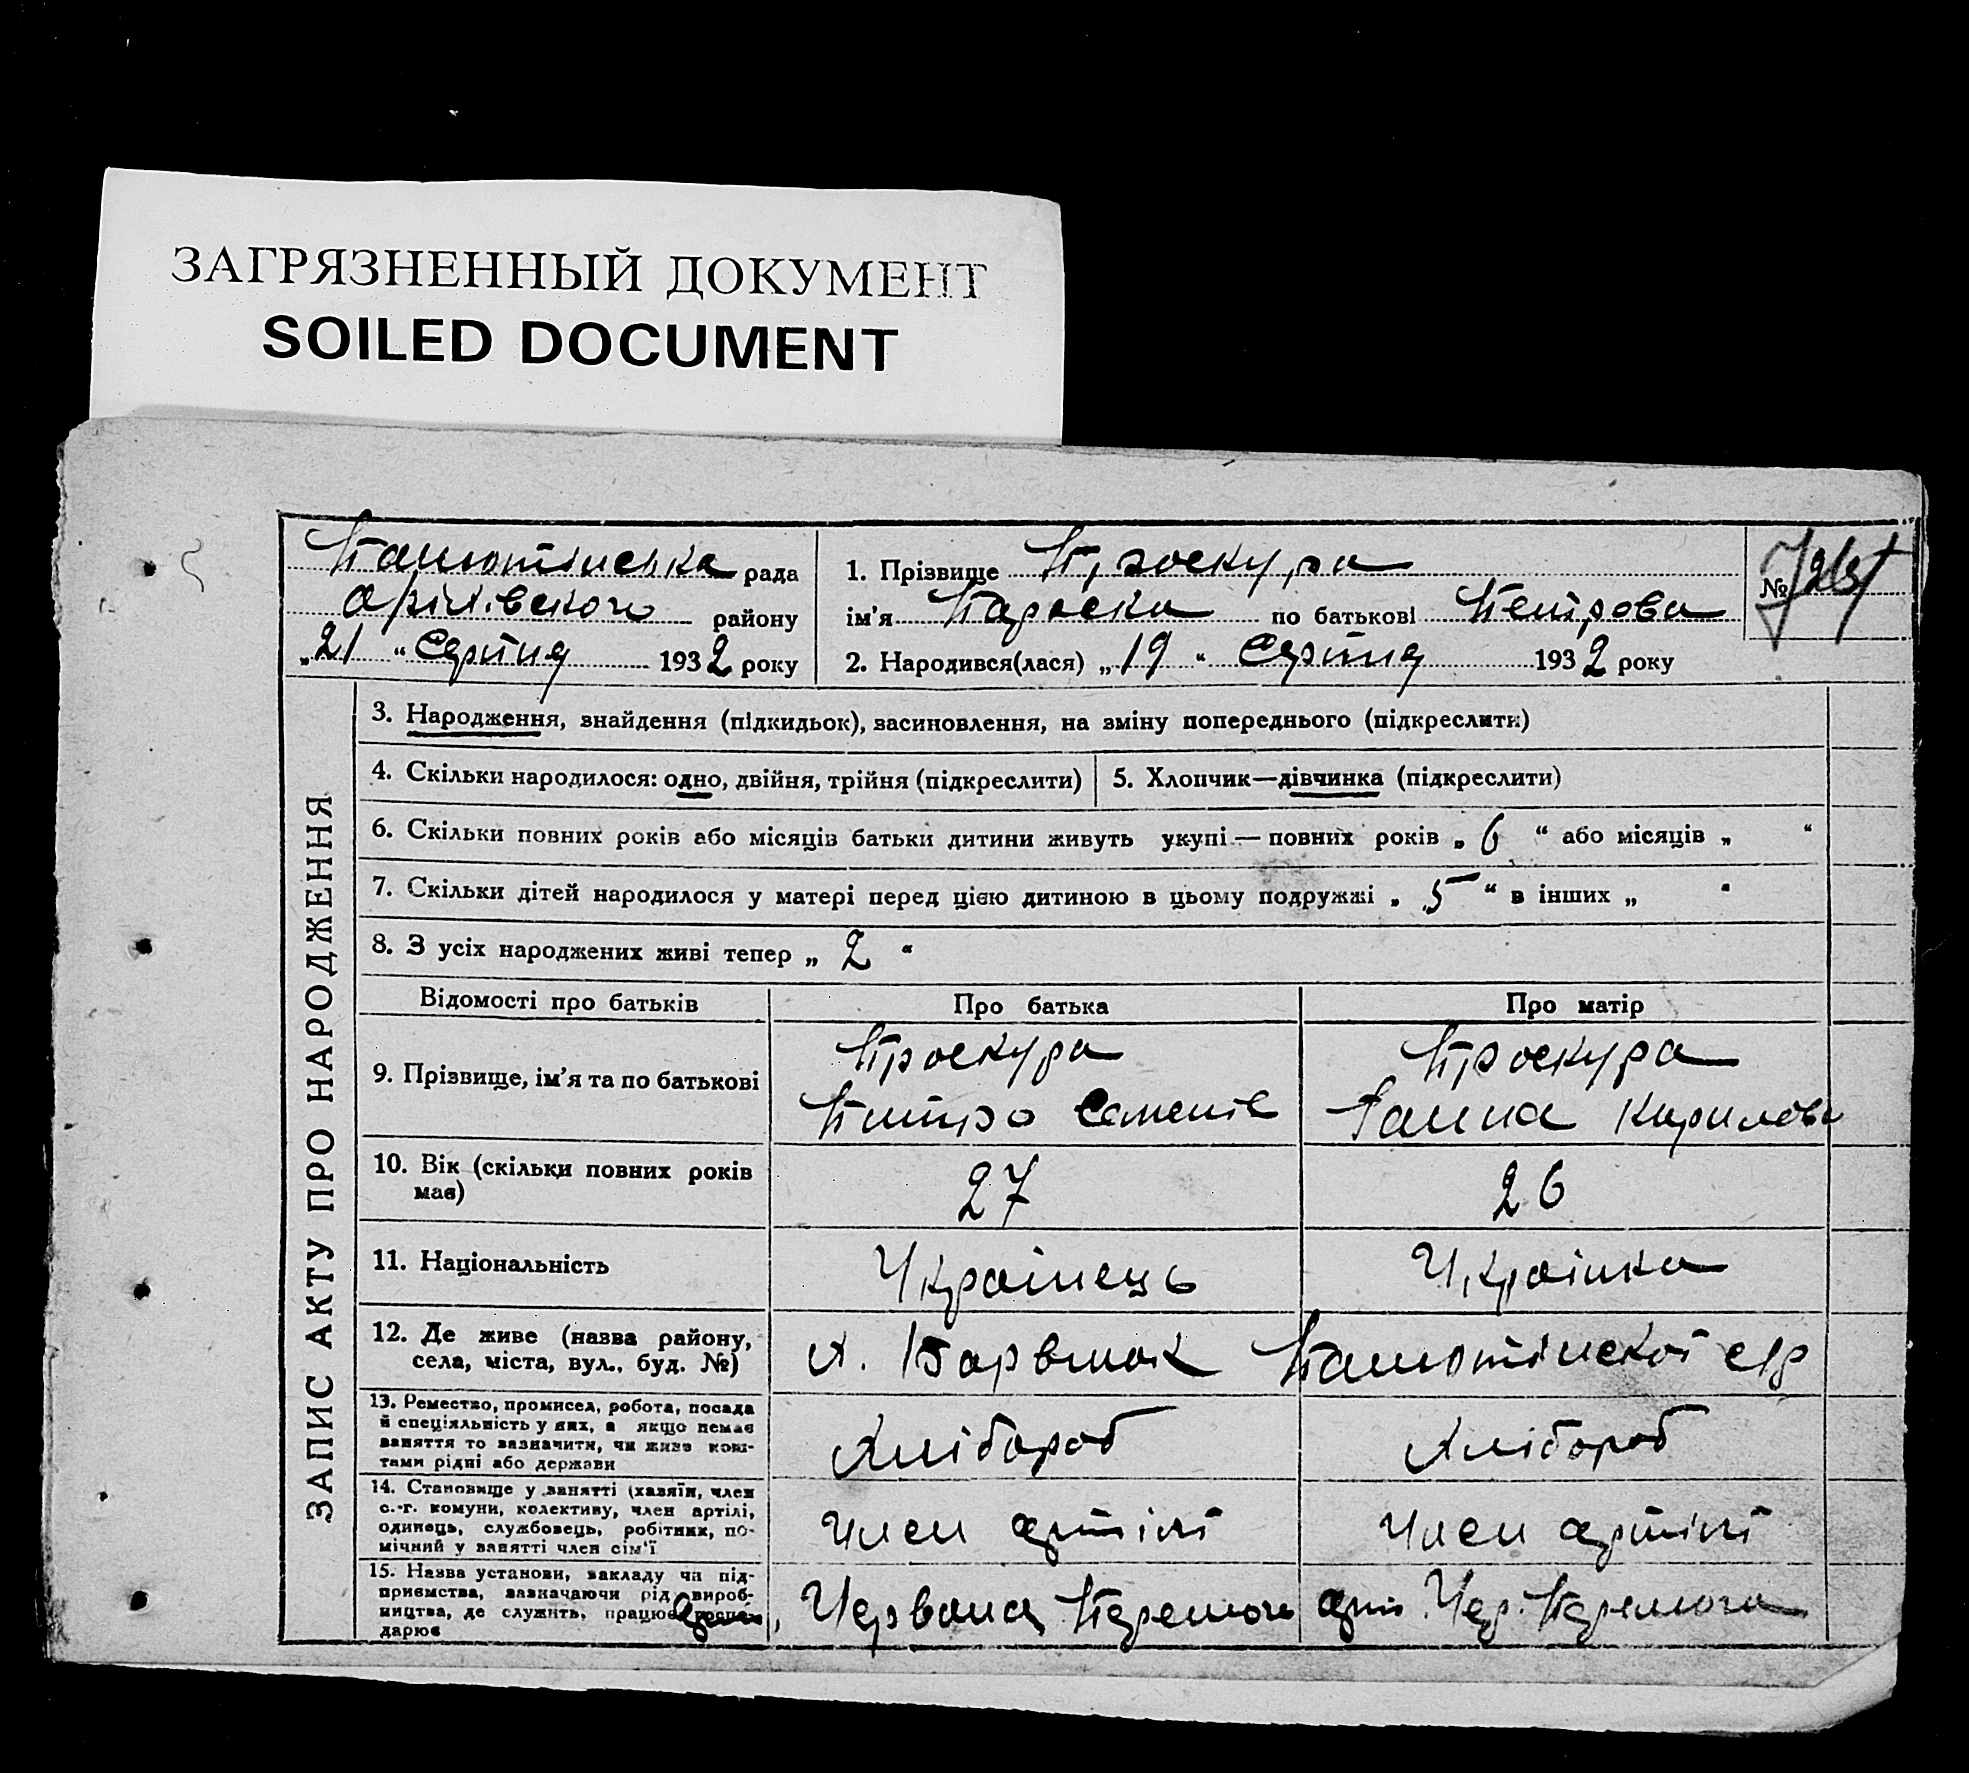 ЗАГРЯЗНЕННЫЙ ДОКУМЕНТ
SOILED DOCUMENT
Панютинська рада
району
„21“ Серпня 1932 року
1. Прізвище Проскура
ім’я Параска по батькові Петрова
2. Народився(лася) „19“ Серпня 1932 року
№
ЗАПИС АКТУ ПРО НАРОДЖЕННЯ
3. Народження, знайдення (підкидьок), засиновлення, на зміну попереднього (підкреслити)
4. Скільки народилося: одно, двійня, трійня (підкреслити)
5. Хлопчик—дівчинка (підкреслити)
6. Скільки повних років або місяців батьки дитини живуть укупі — повних років „6“ або місяців „ “
7. Скільки дітей народилося у матері перед цією дитиною в цьому подружжі „5“ в інших „ “
8. З усіх народжених живі тепер „2“
Відомості про батьків
Про батька
Про матір
9. Прізвище, ім’я та по батькові
Проскура
Питро Семенів
Проскура
Ганна Кирилова
10. Вік (скільки повних років
має)
27
26
11. Національність
Українець
Українка
12. Де живе (назва району,
села, міста, вул., буд. №)
х. Панютинскої с/р
13. Ремество, промисел, робота, посада
й спеціяльність у них, а якщо немає
заняття то зазначити, чи живе кош-
тами рідні або держави
Хлібороб
Хлібороб
14. Становище у занятті (хазяїн, член
с.-г. комуни, колективу, член артілі,
одинець, службовець, робітник, по-
мічний у занятті член сім’ї
Член артілі
Член артілі
15. Назва установи, закладу чи під-
приємства, зазначаючи рід вироб-
ництва, де служить, працює,
дарює
Червона Перемога
арт. Чер. Перемога